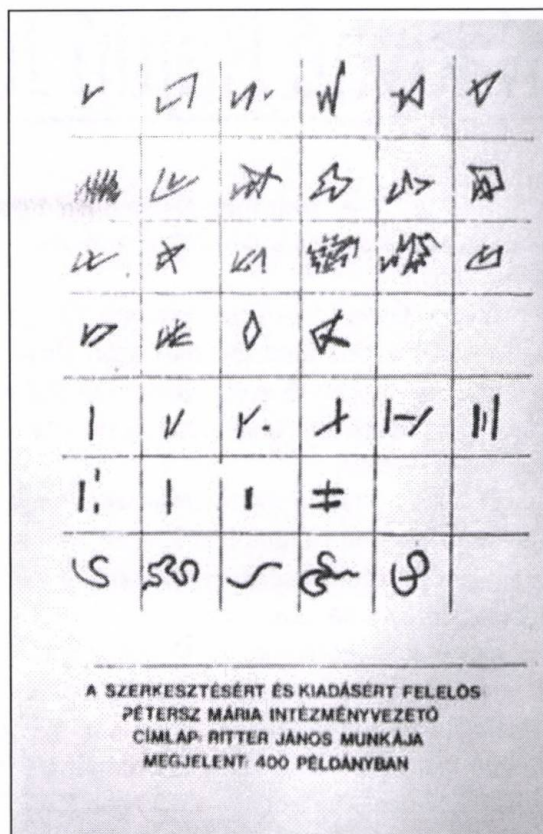 A SZERKESZTÉSÉRT ÉS KIADÁSÉRT FELELŐS:
PÉTERSZ MÁRIA INTÉZMÉNYVEZETŐ
CÍMLAP: RITTER JÁNOS MUNKÁJA
MEGJELENT: 400 PÉLDÁNYBAN